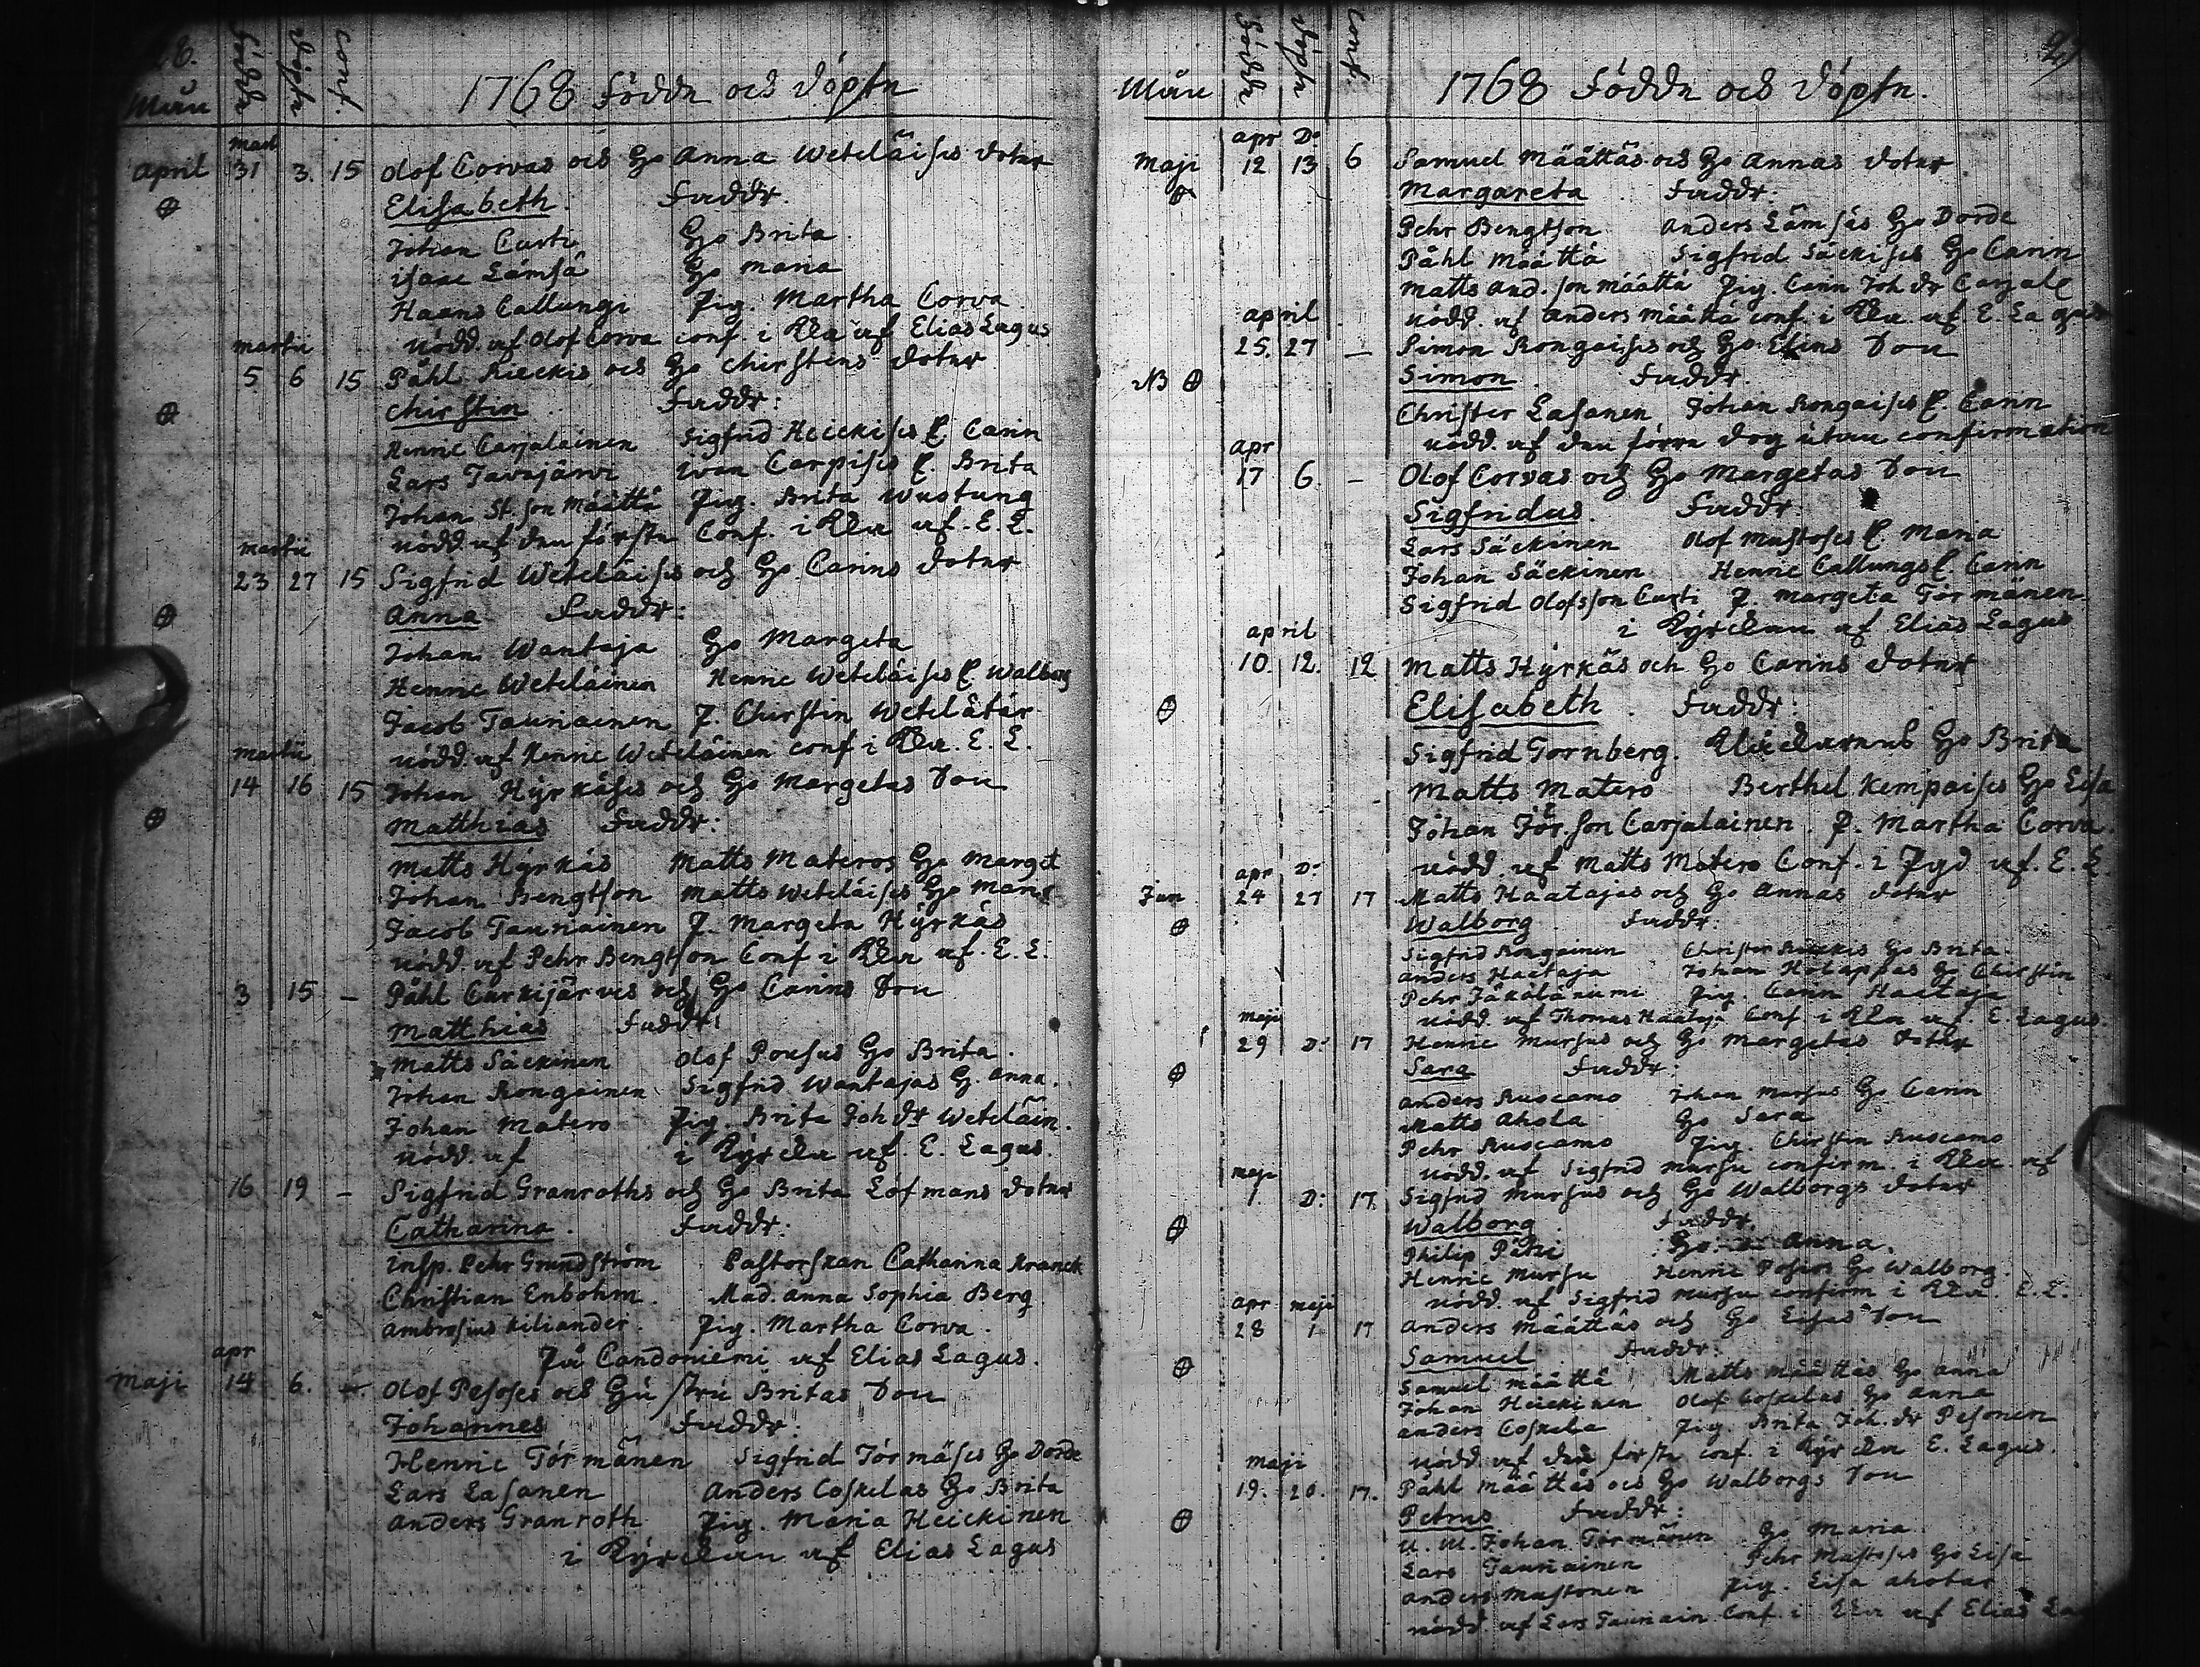 Födde Döpte conf.
Mån 1768 Födde och Döpte
mart
April 31 3. 15 Olof Corvas och Go Anna Weteläises doter
Elisabeth. Faddr.
Johan Curti Go Brita
isaac Lämsä Go Maria
Haans Callungi Pig. Martha Corva
nödd. af Olof Corva conf. i Kka af Elias Lagus
martii
5 6 15 Påhl Kieckis och Go Chirstens doter
Chirstin Faddr:
Henric Carjalainen Sigfrid Heickises C. Carin
Lars Javajärvi Ivan Carpises C. Brita
Johan St. son Määttä Pig. Brita Wuotung
nödd. af den förste Conf. i Kka af. E. L.
martii
23 27 15 Sigfrid Weteläises och Go Carins doter
Anna Faddr:
Johan Wantaja Go Margeta
Henric Weteläinen Henric Weteläises C. Walborg
Jacob Taunainen P. Chirstin Wetelätär
nödd. af Henric Weteläinen conf i Kka. E. L.
martii
14 16 15 Johan Hyrkäses och Go Margetas Son
Matthias Faddr:
Matts Hyrkäs Matts Materos Go Marget
Johan Bengtson Matts Weteläises Go Marg
Jacob Taunainen P. Margeta Hyrkäs
nödd. af Pehr Bengtson Conf i Kka af. E. L.
3 15 – Påhl Curkijärvis och Go Carins Son
Matthias Faddr:
Matts Säckinen Olof Pousus Go Brita.
Johan Rongainen Sigfrid Wantajas G. Anna.
Johan Matero Pig. Brita Joh dr Weteläin.
nödd. af i Kyrckan af. E. Lagus.
16 19 – Sigfrid Granroths och Go Brita Lofmans doter
Catharina. Faddr:
Insp. Pehr Grundström Pastorskan Catharina Kranck
Christian Enbohm. Mad. Anna Sophia Berg
Ambrosius Kiliander. Pig. Martha Corva.
På Candoniemi af Elias Lagus.
apr
Maji 14 6. Olof Pesoses och Gu stru Britas Son
Johannes Faddr:
Henric Törmänen Sigfrid Törmäses Go Dorde
Lars Lasanen Anders Coskelas Go Brita
Anders Granroth Pig. Maria Heickinen
i Kyrckan af Elias Lagus
Födde Döpte conf.
Mån 1768 Födde och Döpte.
apr Do
Maji 12 13 6 Samuel Määttäs och Go Annas doter
Margareta Faddr:
Pehr Bengtson Anders Lämsäs Go Dorde
Påhl Määttä Sigfrid Säckises Go Carin
Matts And. son Määttä Pig. Carin Joh dr Carjal
nödd. af Anders Määttä conf. i Kka. af E. Lagus
april
25. 27 – Simon Rongaises och Go Elins Son
NB Simon Faddr.
Christer Lasanen Johan Rongaises C. Carin
nödd. af den förra dog utan confirmation
apr
17 6. – Olof Corvas och Go Margetas Son
Sigfridus. Faddr.
Lars Säckinen Olof Mustoses C Maria
Johan Säckinen Henric Callungs C Carin
Sigfrid Olofsson Curti P. Margeta Törmänen
i Kyrckan af Elias Lagus
april
10. 12. 12 Matts Hyrkäs och Go Carins doter
Elisabeth. Faddr:
Sigfrid Tornberg. Klåckarens Go Brita
Matts Matero Berthel Kempaises Go Lisa
Johan Jör. son Carjalainen. P. Martha Corva.
nödd. af Matts Matero Conf. i Pygd af. E. L.
apr Do
Jun 24 27 17 Matts Haatajas och Go Annas doter
Walborg Faddr:
Sigfrid Rongainen Christer Kieckis Go Brita.
Anders Haataja Johan Holappas Go Chirstin
Pehr Jäkäläniemi Pig. Carin Haataja
nödd. af Thomas Haataja Conf. i Kka af E. Lagus.
maji
29 Do 17 Henric Mursus och Go Margetas Doter
Sara Faddr:
Anders Ruocamo Johan Mursus Go Carin
Matts Ahola Go Sara
Pehr Ruocamo Pig. Chirstin Ruocamo
nödd. af Sigfrid Mursu confirm. i Kka. af
maji
1 D: 17. Sigfrid Mursus och Go Walborgs doter
Walborg. Faddr.
Philip Pätsi Go Anna.
Henric Mursu Henric Posios Go Walborg.
nödd. af Sigfrid Mursu confirm i Kka. E. L.
apr maji
28 1 17 Anders Määttäs och Go Lisas Son
Samuel Faddr:
Samuel Määttä Matts Määttäs Go Anna
Johan Heickinen Olof Coskelas Go Anna
Anders Coskela Pig. Brita Joh. dr Pesonen
nödd af den förste conf. i Kyrckan E. Lagus.
maji
19. 20. 17. Påhl Määttäs och Go Walborgs Son
Petrus Faddr:
Johan Törmänen Go Maria
Lars Taunainen Pehr Mustoses Go Lisa
Anders Mustonen Pig. Lisa Aholar
nödd. af Lars Taunain Conf. i Kka af Elias La